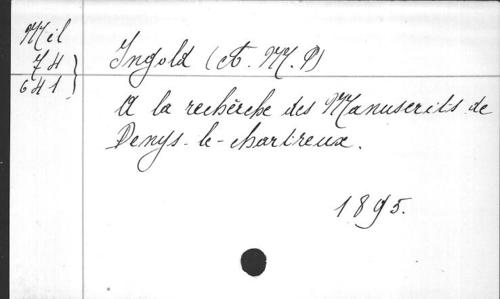 Mil
74
641
Ingold (A. M. P)
A la recherche des Manuscrits de
Denys-le-chartreux.
1895.